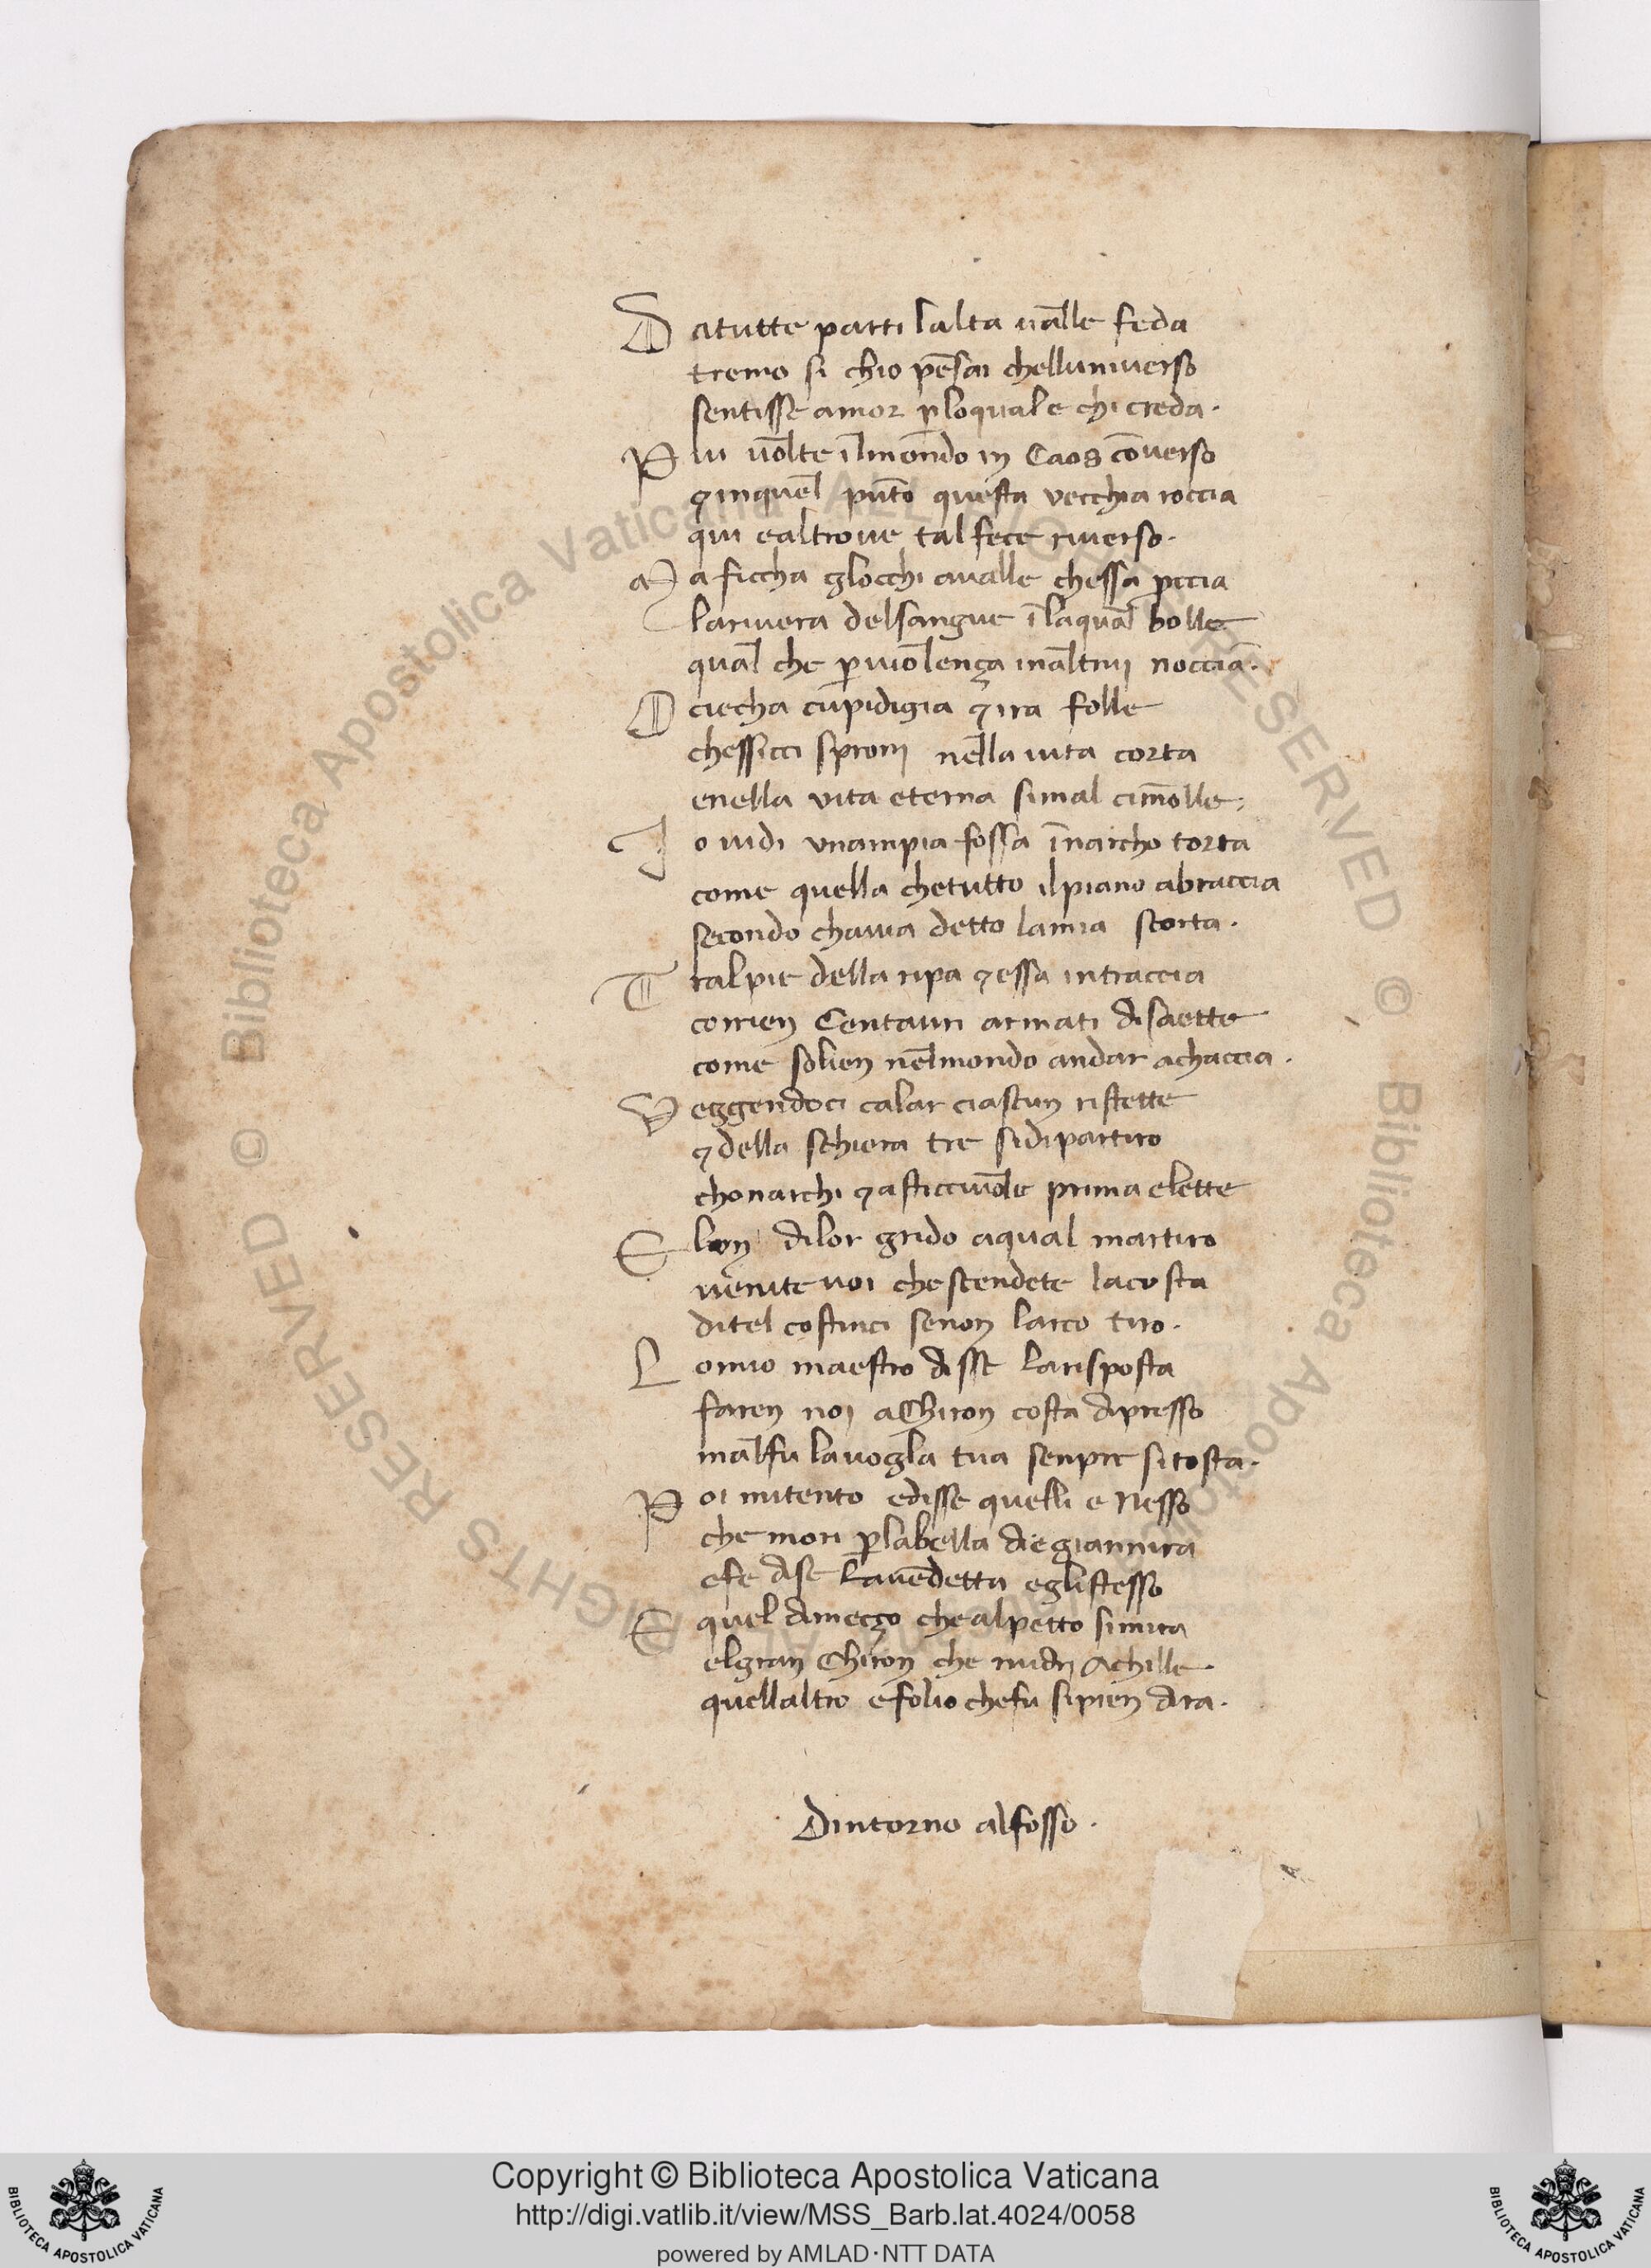 D atutte parti lalta ualle feda
tremo si chio pēsai chelluniuerso
sentisse amor ꝑloquale chi creda.
P iu uolte ilmōndo in Caos cōuerso
⁊ inquel pūto questa vecchia roccia
qui ealtroue tal fece riuerso.
M a ficcha glocchi aualle chessa ꝓccia
lariuera delsangue īlaqual bolle
qual che ꝑuiolença inaltrui noccia.
O ciecha cupidigia ⁊ ira folle
chessicci sproni nella uita corta
enella vita eterna simal cim̄olle.
I o uidi vnampia fossa īnarcho torta
come quella chetutto ilpiano abraccia
secondo chauia detto lamia scorta.
T ralpie della ripa ⁊ essa intraccia
corrien Centauri armati disaette
come solien nelmondo andar achaccia.
V eggendoci calar ciascun ristette
⁊ della schiera tre sidipartiro
chonarchi ⁊ asticciuole prima elette
E lun dilor grido aqual martiro
uenite uoi chescendete lacosta
ditel costinci senon larco tiro.
L omio maestro disse larisposta
faren noi aChiron costa dipresso
malfu lauogla tua senpre sitosta.
P oi mitento edisse quelli e Nesso
che mori ꝑlabella diegiannira
efe dise lauēdetta eglistesso
E quel dimecço chealpetto simira
elgran Chiron che nudri Achille
quellaltro efolio chefu sipien dira.
Dintorno alfosso.
© Biblioteca Apostolica Vaticana ALL RIGHTS RESERVED © Biblioteca Apostolica Vaticana ALL RIGHTS RESERVED
Copyright © Biblioteca Apostolica Vaticana
http://digi.vatlib.it/view/MSS_Barb.lat.4024/0058
powered by AMLAD·NTT DATA
BIBLIOTECA APOSTOLICA VATICANA
BIBLIOTECA APOSTOLICA VATICANA